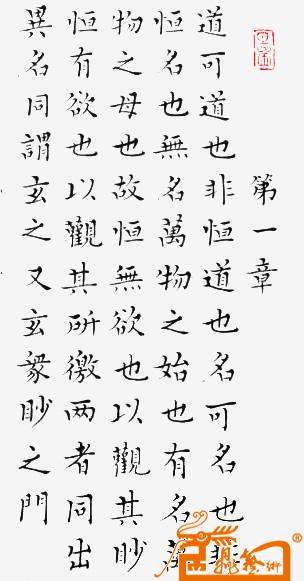 第一章
道可道也非恒道也名可名也非
恒名也無名萬物之始也有名萬
物之母也故恒無欲也以觀其眇
恒有欲也以觀其所徼两者同出
異名同謂玄之又玄衆眇之門